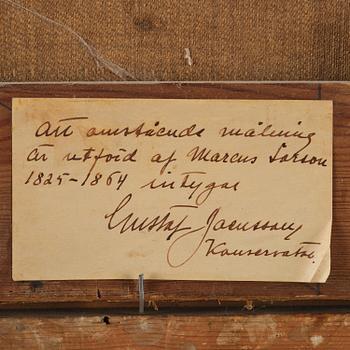 Att omstående målning
är utförd af Marcus Larson
1825-1864 intygas
Gustaf Jaensson
Konservator.